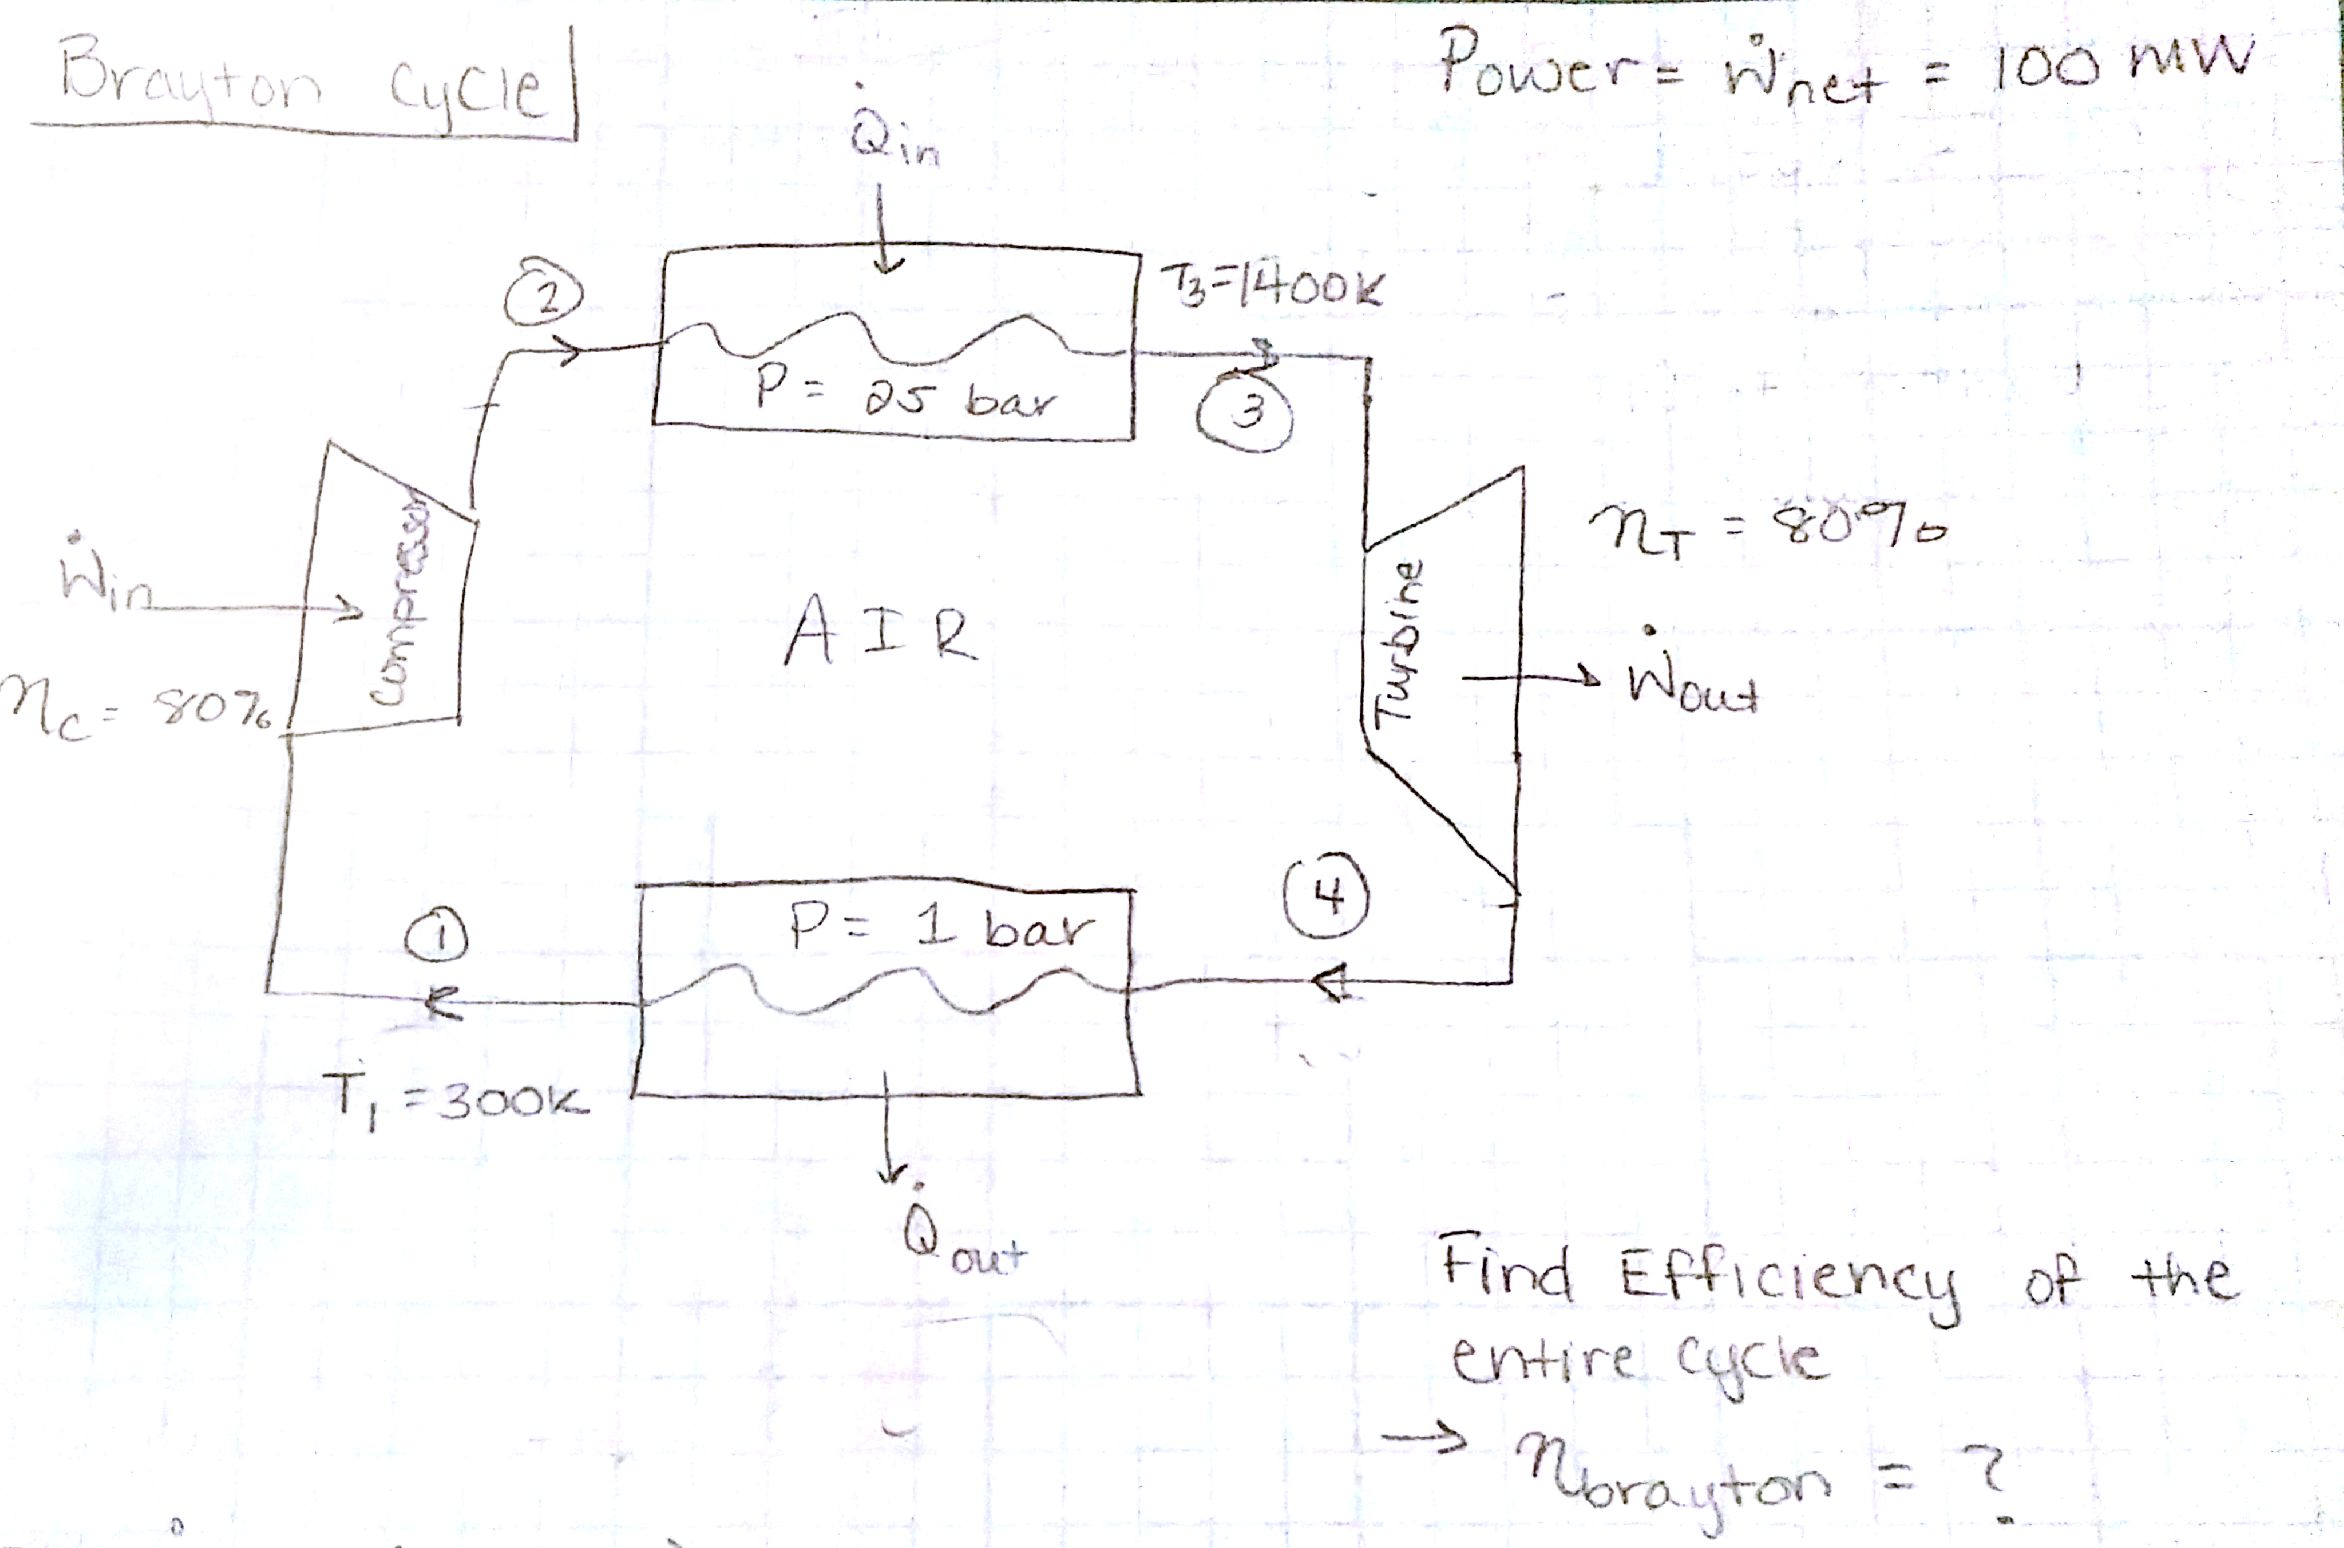 Brayton Cycle
Power = Ẇnet = 100 MW
Q̇in
②
T3=1400K
P = 25 bar
③
Compressor
ηT = 80%
Ẇin
AIR
Turbine
Ẇout
ηC = 80%
④
P = 1 bar
①
T1 = 300K
Q̇out
Find Efficiency of the
entire cycle
→ ηbrayton = ?